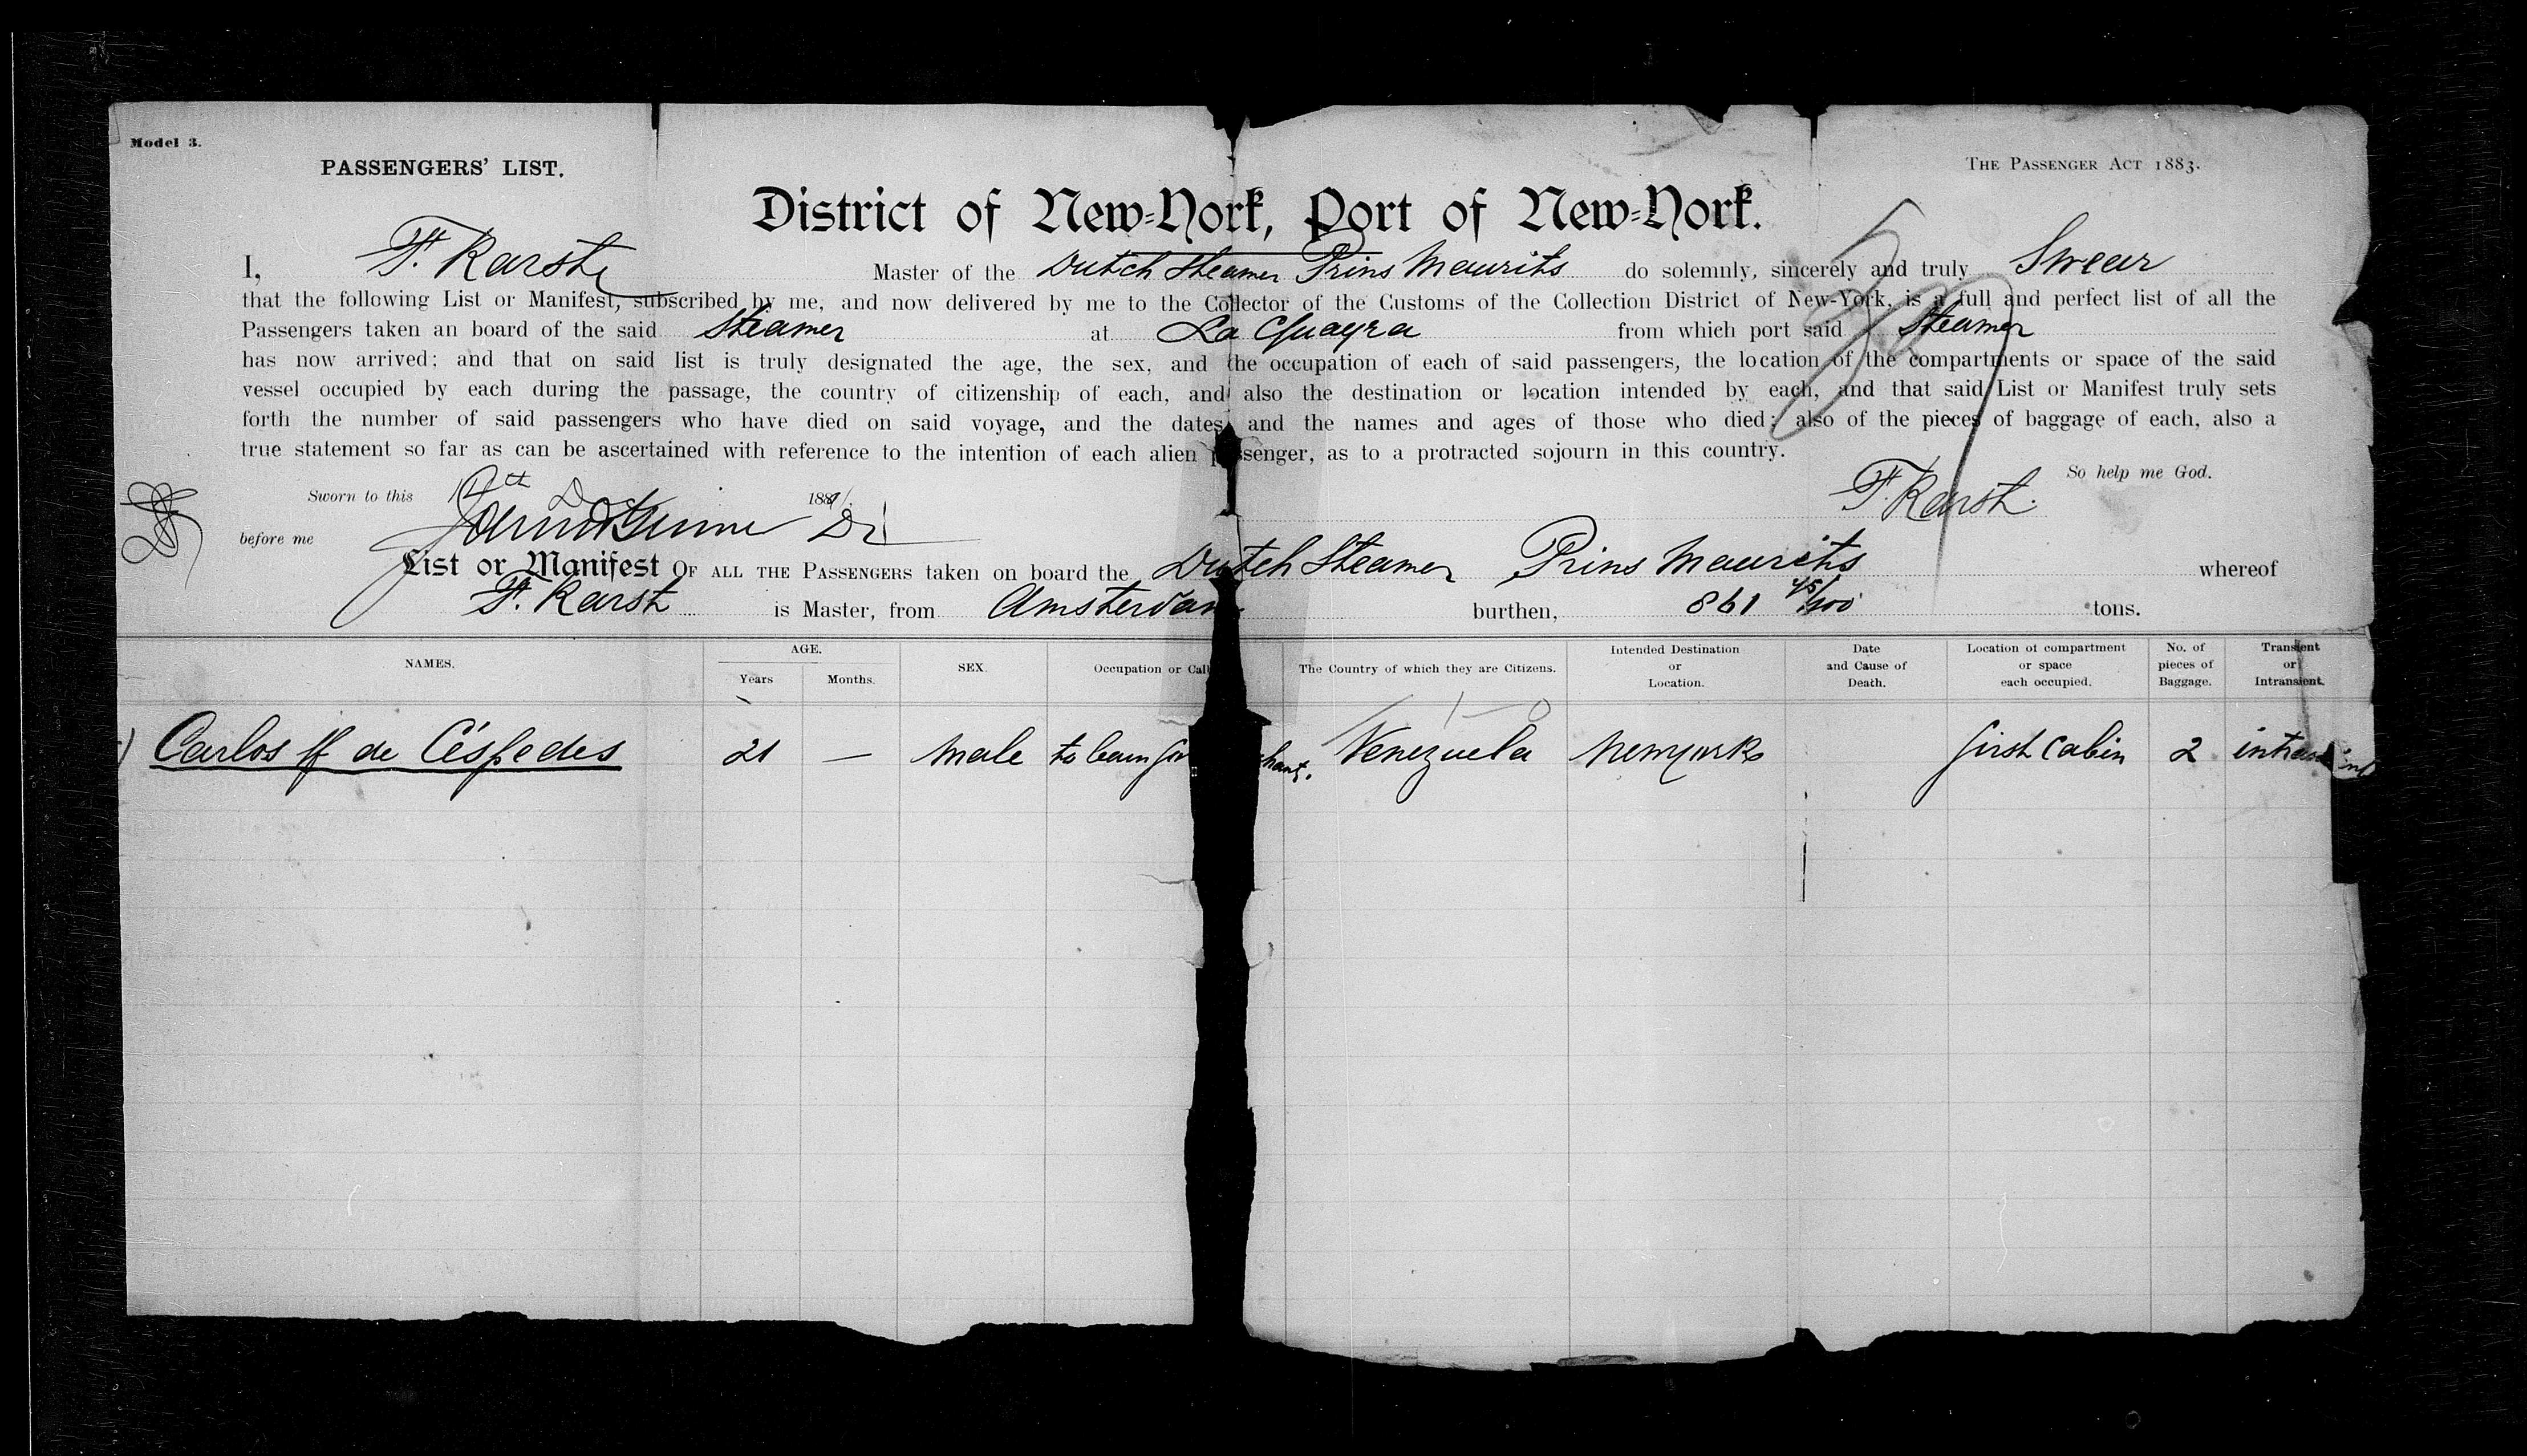 Model 3.
PASSENGERS' LIST.
THE PASSENGER ACT 1883.
District of New-York, Port of New-York.
I, F. Karst Master of the Dutch Steamer Prins Maurits do solemnly, sincerely and truly Swear
that the following List or Manifest, subscribed by me, and now delivered by me to the Collector of the Customs of the Collection District of New-York, is a full and perfect list of all the
Passengers taken an board of the said Steamer at La Guayra from which port said Steamer
has now arrived; and that on said list is truly designated the age, the sex, and the occupation of each of said passengers, the location of the compartments or space of the said
vessel occupied by each during the passage, the country of citizenship of each, and also the destination or location intended by each, and that said List or Manifest truly sets
forth the number of said passengers who have died on said voyage, and the dates and the names and ages of those who died; also of the pieces of baggage of each, also a
true statement so far as can be ascertained with reference to the intention of each alien passenger, as to a protracted sojourn in this country.
So help me God.
Sworn to this 188
F. Karst.
before me
List or Manifest OF ALL THE PASSENGERS taken on board the Dutch Steamer Prins Maurits whereof
F. Karst is Master, from Amsterdam burthen, 861 45/100 tons.
NAMES. AGE. Years Months. SEX. Occupation or Call The Country of which they are Citizens. Intended Destination or Location. Date and Cause of Death. Location of compartment or space each occupied. No. of pieces of Baggage. Transient or Intransient.
Carlos M de Céspedes 21 — Male to learn for hant. Venezuela Newyork first Cabin 2 intransient